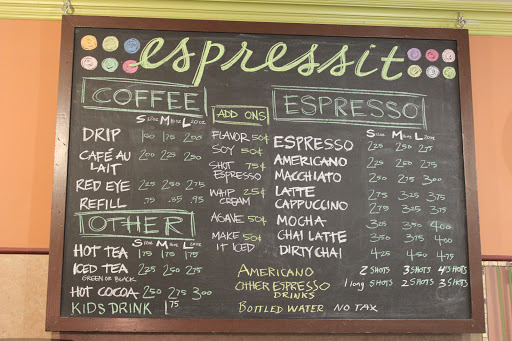 espressit
COFFEE
S 12oz M 16oz L 20oz
DRIP 1.00 1.75 2.00
CAFÉ AU LAIT 2.00 2.25 2.50
RED EYE 2.25 2.50 2.75
REFILL .75 .85 .95
OTHER
S 12oz M 16oz L 20oz
HOT TEA 1.75 1.75 1.75
ICED TEA 2.25 2.50 2.75
GREEN OR BLACK
HOT COCOA 2.50 2.75 3.00
KIDS DRINK 1.75
ADD ONS
FLAVOR 50¢
SOY 50¢
SHOT 75¢
ESPRESSO
WHIP 25¢
CREAM
AGAVE 50¢
MAKE 50¢
IT ICED
ESPRESSO
S 12oz M 16oz L 20oz
ESPRESSO 2.25 2.50 2.75
AMERICANO 2.25 2.50 2.75
MACCHIATO 2.50 2.75 3.00
LATTE 2.75 3.25 3.75
CAPPUCCINO 2.75 3.25 3.75
MOCHA 3.25 3.50 4.00
CHAI LATTE 3.50 3.75 4.00
DIRTY CHAI 4.25 4.50 4.75
AMERICANO 2 SHOTS 3 SHOTS 4 SHOTS
OTHER ESPRESSO DRINKS 1 long SHOTS 2 SHOTS 3 SHOTS
BOTTLED WATER NO TAX